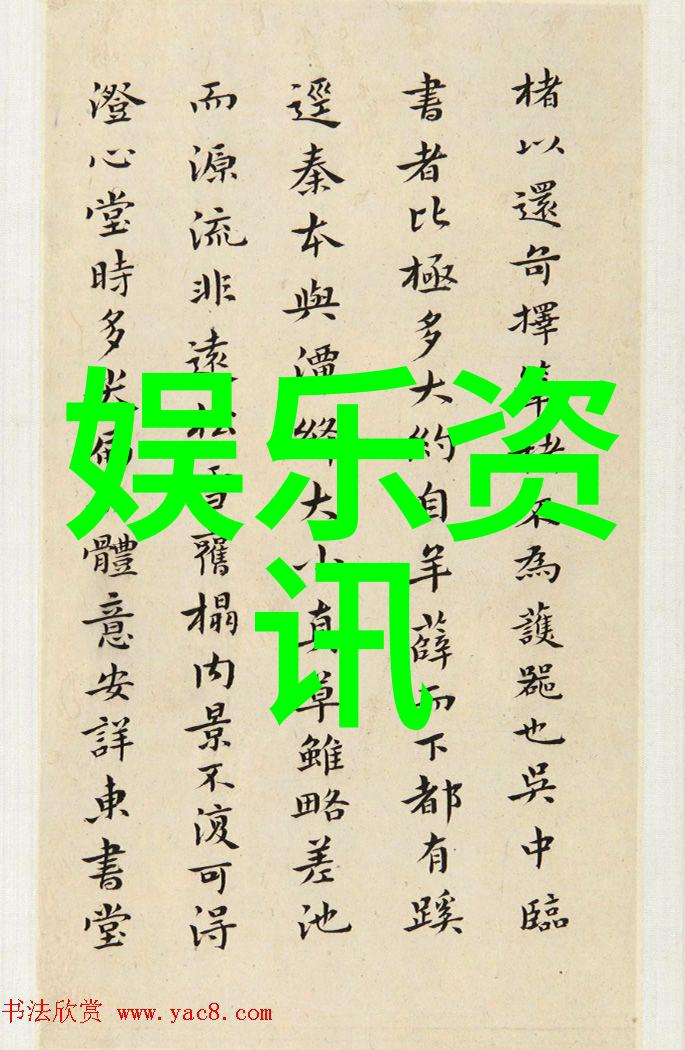 楮以還苟擇筆楮不為護器也吳中臨
書者比極多大約自羊薛而下都有蹊
逕秦本與潭絳大小真草雖略差池
而源流非遠松雪舊榻內景不復可得
澄心堂時多體意安詳東書堂
娱乐资
讯
书法欣赏 www.yac8.com